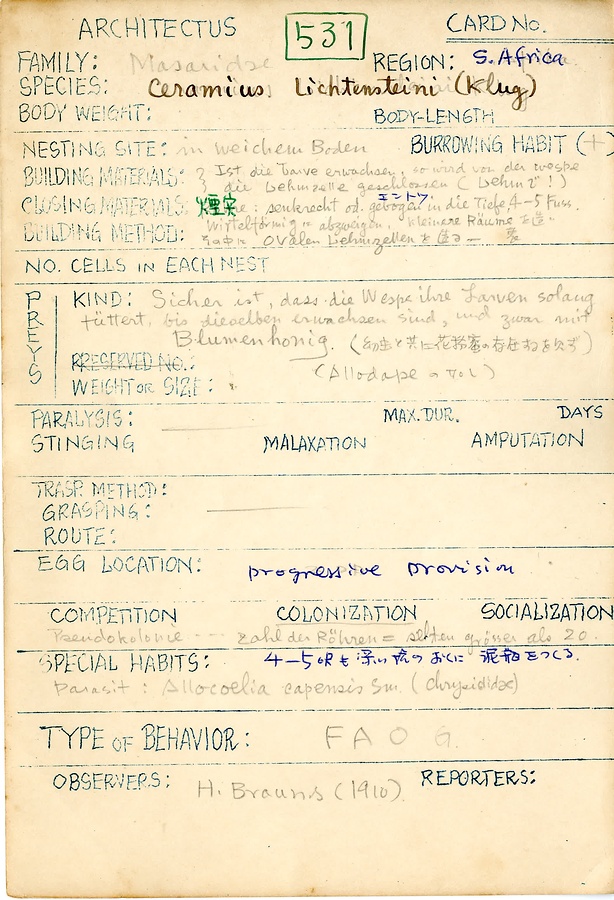 ARCHITECTUS 531 CARD NO.
FAMILY: Masaridae REGION: S. Africa
SPECIES: Ceramius Lichtensteini (Klug)
BODY WEIGHT: BODY-LENGTH
NESTING SITE: in weichem Boden BURROWING HABIT (+)
BUILDING MATERIALS: Ist die Larve erwachsen, so wird von der Wespe
CLOSING MATERIALS: die Lehmzelle geschlossen (Lehm!)
煙突 エントツ senkrecht od. gebogen in die Tiefe 4-5 Fuss.
BUILDING METHOD: Wirtelförmig abzweigen, kleinere Räume
ovalen Lehmzellen
NO. CELLS IN EACH NEST
PREYS
KIND: Sicher ist, dass die Wespe ihre Larven solang
füttert, bis dieselben erwachsen sind, und zwar mit
Blumenhonig. (幼虫と共に花粉蜜の存在ねを欠ず)
PRESERVED NO.:
WEIGHT OR SIZE: (Allodape
PARALYSIS: MAX. DUR. DAYS
STINGING MALAXATION AMPUTATION
TRASP. METHOD:
GRASPING:
ROUTE:
EGG LOCATION: progressive provision
COMPETITION COLONIZATION SOCIALIZATION
Pseudokolonie ---- zahl der Röhren = selten grösser als 20.
SPECIAL HABITS: 4-5 深い坑のおくに泥 をつくる.
Parasit: Allocoelia capensis Sm. (Chrysididae)
TYPE OF BEHAVIOR: F A O G.
OBSERVERS: H. Brauns (1910) REPORTERS: